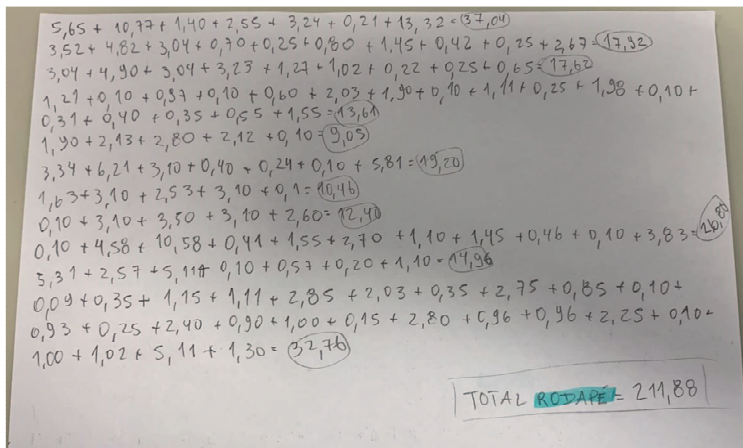 5,65 + 10,77 + 1,40 + 2,55 + 3,24 + 0,21 + 13,32 = 37,04
3,52 + 4,82 + 3,04 + 0,70 + 0,25 + 0,80 + 1,45 + 0,42 + 0,25 + 2,67 = 17,92
3,04 + 4,90 + 3,04 + 3,23 + 1,27 + 1,02 + 0,22 + 0,25 + 0,65 = 17,62
1,21 + 0,10 + 0,97 + 0,10 + 0,60 + 2,03 + 1,90 + 0,10 + 1,11 + 0,25 + 1,98 + 0,10 +
0,31 + 0,40 + 0,35 + 0,55 + 1,55 = 13,61
1,90 + 2,13 + 2,80 + 2,12 + 0,10 = 9,05
3,34 + 6,21 + 3,10 + 0,40 + 0,24 + 0,10 + 5,81 = 19,20
1,63 + 3,10 + 2,53 + 3,10 + 0,1 = 10,46
0,10 + 3,10 + 3,50 + 3,10 + 2,60 = 12,40
0,10 + 4,58 + 10,58 + 0,41 + 1,55 + 2,70 + 1,10 + 1,45 + 0,46 + 0,10 + 3,83 = 26,80
5,31 + 2,57 + 5,11 + 0,10 + 0,57 + 0,20 + 1,10 = 14,96
0,09 + 0,35 + 1,15 + 1,11 + 2,85 + 2,03 + 0,35 + 2,75 + 0,85 + 0,10 +
0,93 + 0,25 + 2,40 + 0,90 + 1,00 + 0,15 + 2,80 + 0,96 + 0,96 + 2,25 + 0,10 +
1,00 + 1,02 + 5,11 + 1,30 = 32,76
TOTAL RODAPÉ = 211,88